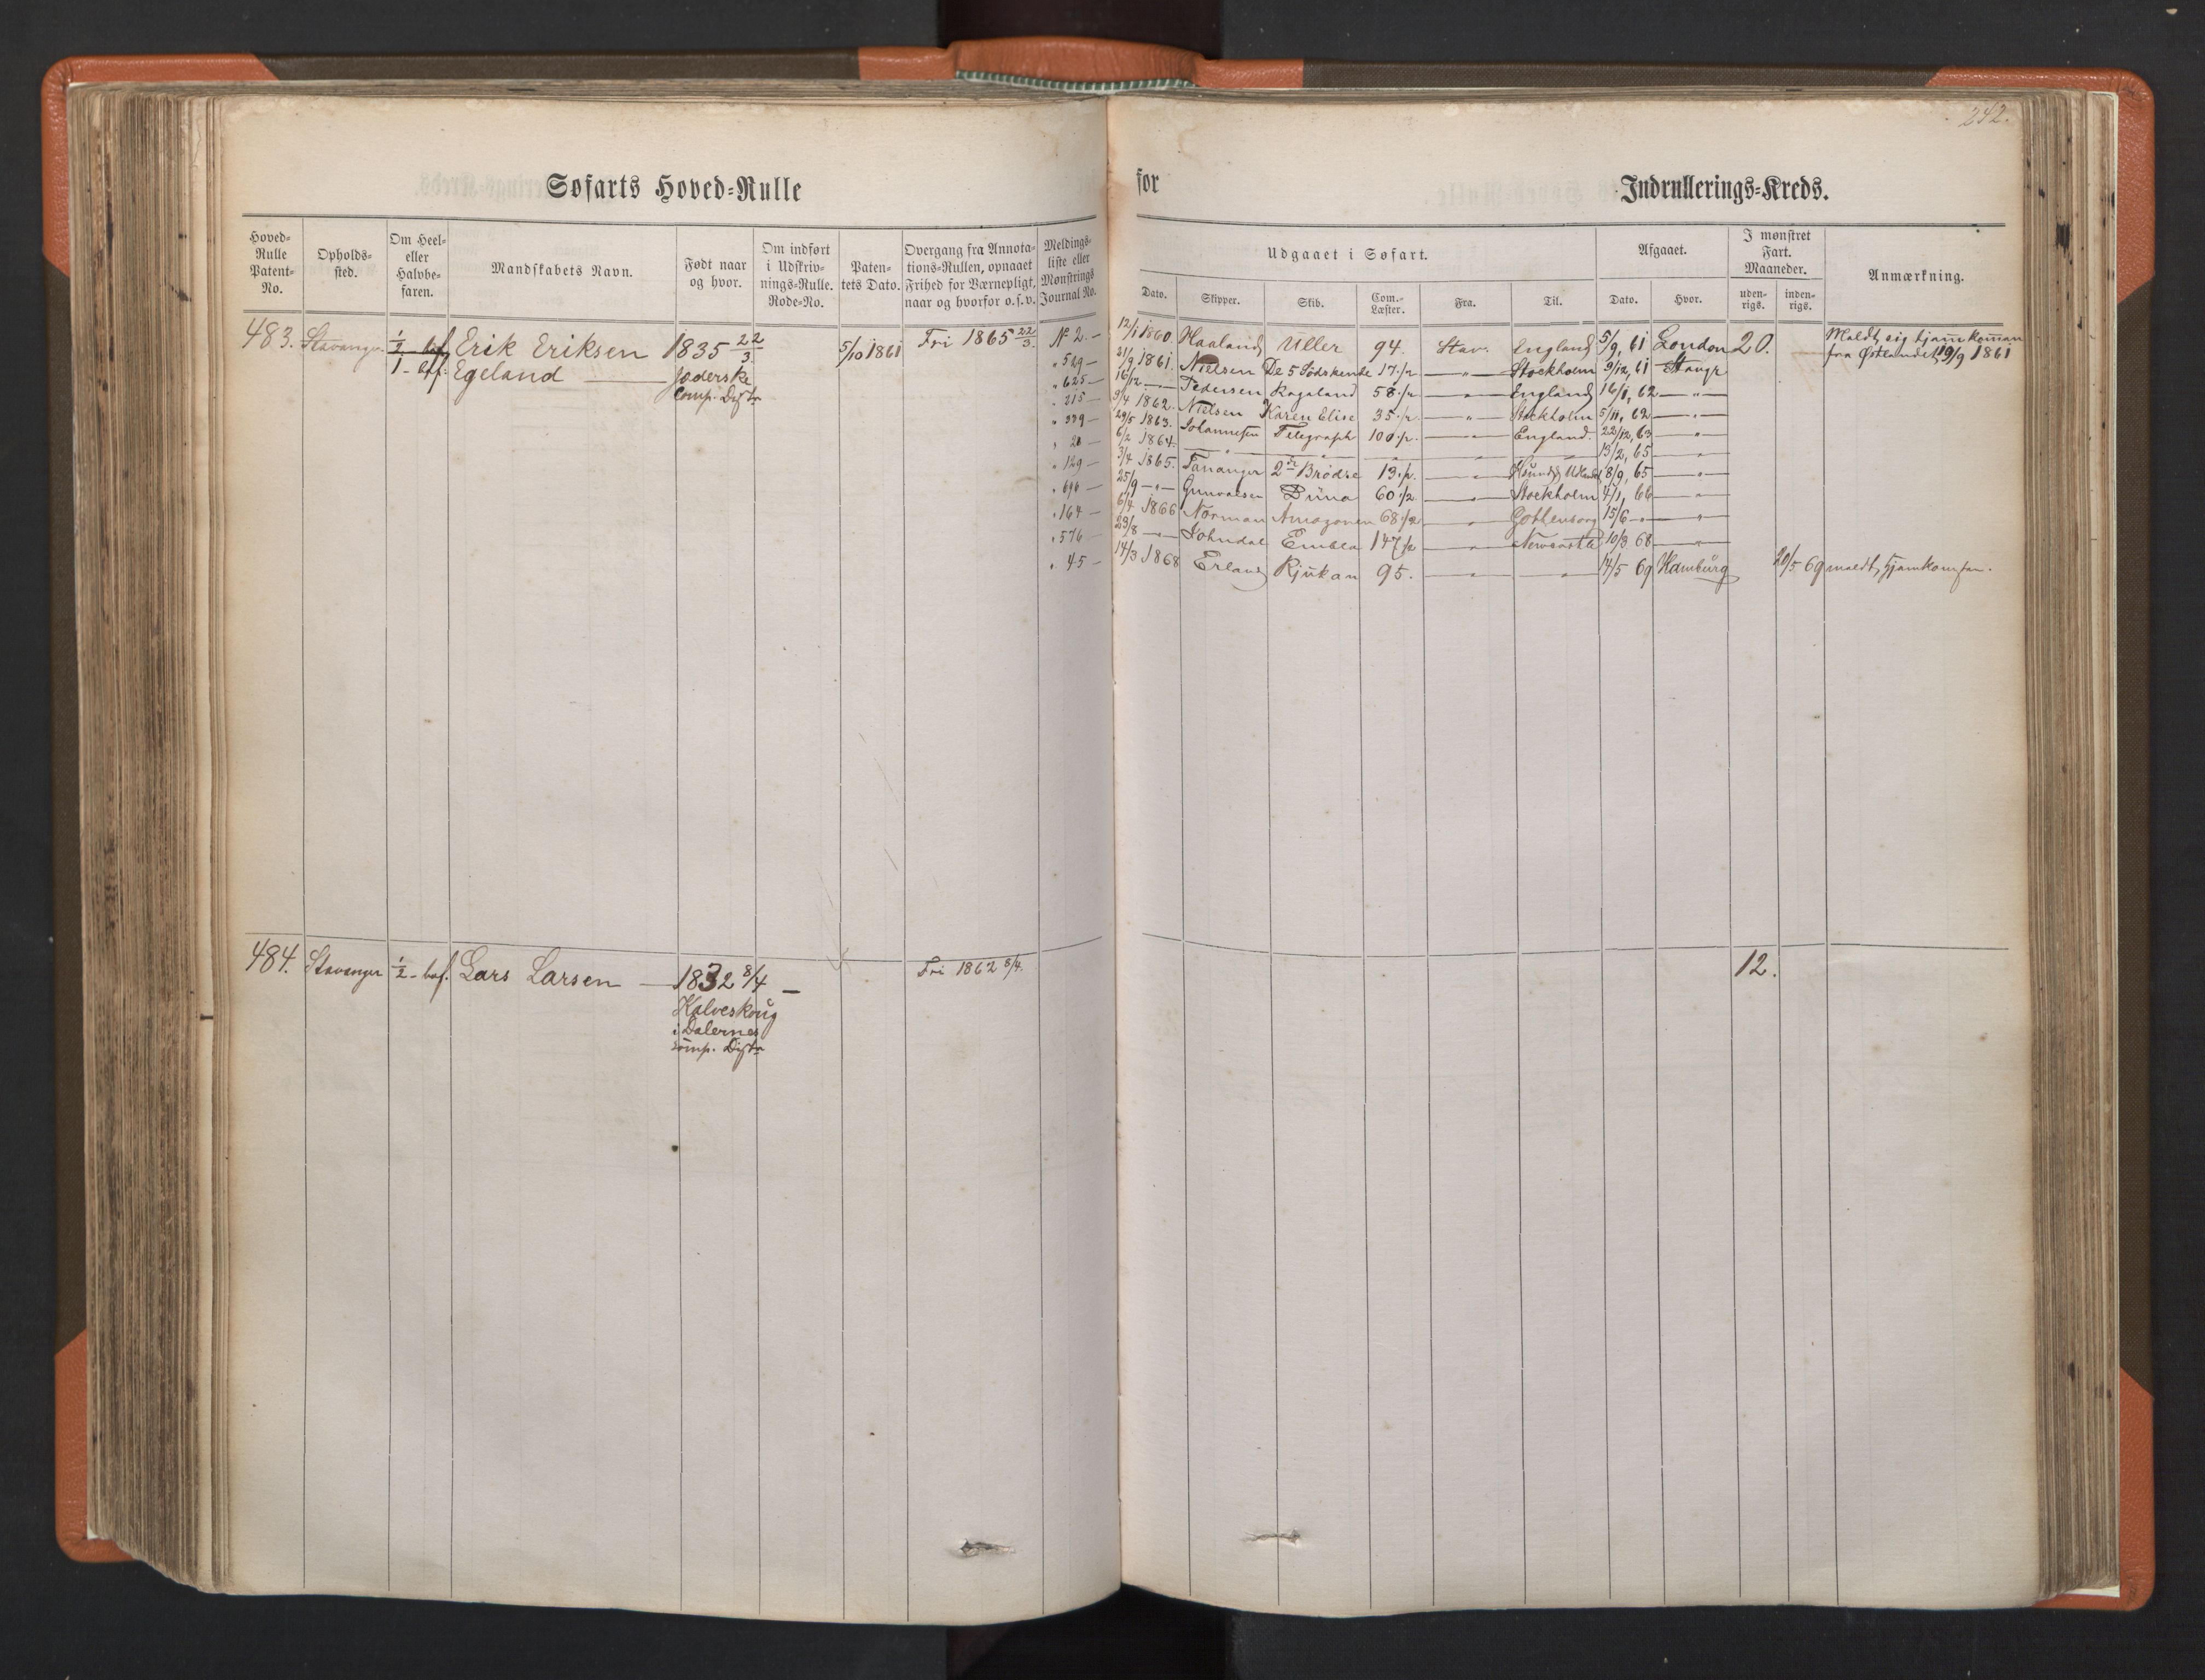 242.
Søfarts Hoved-Rulle for Indrullerings-Kreds.
Hoved-Rulle Patent-No. Opholds-sted. Om Heel- eller Halvbe-faren. Mandskabets Navn. Født naar og hvor. Om indført i Udskriv-nings-Rulle. Rode-No. Paten-tets Dato. Overgang fra Annota-tions-Rullen, opnaaet Frihed for Værnepligt, naar og hvorfor o.s.v. Meldings-liste eller Mønstrings Journal No.
Udgaaet i Søfart. Afgaaet. I mønstret Fart. Maaneder. Anmærkning.
Dato. Skipper. Skib. Com.-Læster. Fra. Til. Dato. Hvor. uden-rigs. inden-rigs.
483. Stavanger ½ baf Erik Eriksen 1835 22/3 5/10 1861 Fri 1865 22/3. № 2. — 12/1 1860. Haaland Uller 94. Stav. England 5/9, 61 London 20. Meldt sig hjemkommen
1 - bf. Egeland — Jæderske " 529 — 21/9 1861. Nielsen De 5 Södskende 17 ½ — " — Stockholm 9/12, 61 Stavgr fra Østlandet 19/9 1861
Comp. Distr " 625 — 16/12 — " — Pedersen Rogaland 58 ½ — " — England 16/1, 62 — " —
" 215 — 3/4 1862. Nielsen Karen Elise 35 ½ — " — Stockholm 5/11, 62 — " —
" 339 — 29/5 1863. Johannesen Telegraph 100 ½ — " — England. 22/12, 63 — " —
" 20 — 6/2 1864. — " — — " — — " — — " — — " — 13/2, 65 — " —
" 129 — 3/4 1865. Tananger 2de Brødre 13 ½ — " — 8/9, 65 — " —
" 696 — 25/9 — " — Gunvalsen Duna 60 ½ — " — Stockholm 4/1, 66 — " —
" 164 — 6/4 1866 Norman Amazonen 68 ½ — " — Gottenborg 15/6 — " — — " —
" 576 — 23/8 — " — Johndal Embla 147 ½ — " — Newcastle 10/3 68 — " —
" 45 — 14/3 1868 Erland Rjukan 95. — " — — " — 14/5 69 Hamburg 20/5 69 meldt hjemkommen.
484. Stavanger ½ - baf. Lars Larsen — 1832 8/4 — Fri 1862 8/4. 12.
Kalveskoug
i Dalernes
Comp. Distr